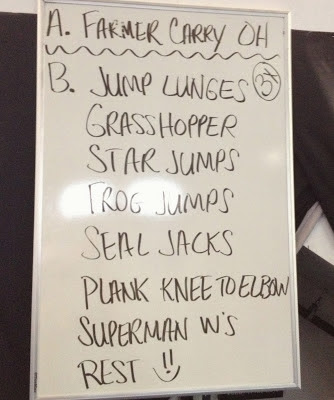 A. FARMER CARRY OH
B. JUMP LUNGES 3x
GRASSHOPPER
STAR JUMPS
FROG JUMPS
SEAL JACKS
PLANK KNEE TO ELBOW
SUPERMAN W'S
REST !!